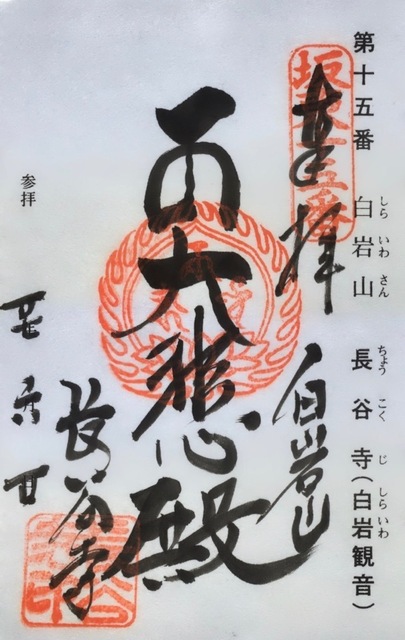 第十五番 白岩山 長谷寺(白岩観音)
しら いわ さん ちょう こく じ しらいわ
坂東十五番
奉拝
白岩山
大悲殿
長谷寺
参拝